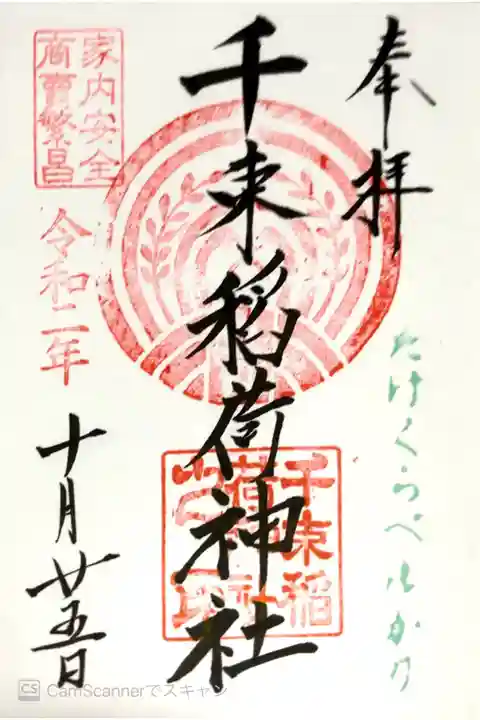 奉拝
たけくらべゆかり
千束稲荷神社
千束稲
家内安全
商売繁昌
令和二年
十月廿五日
CS CamScannerでスキャン